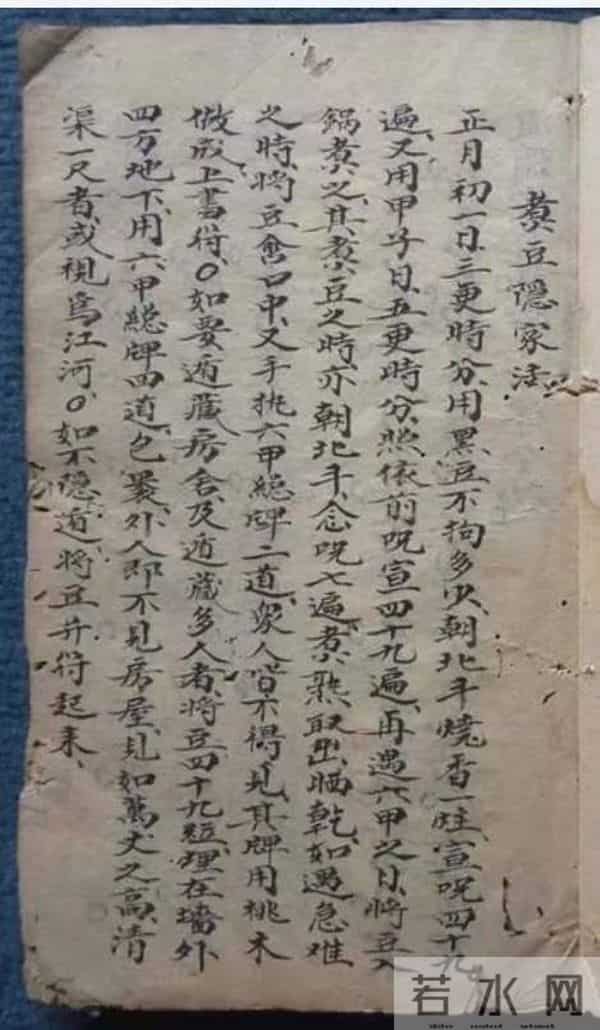 煑豆隱家法
正月初一日、三更時分、用黑豆不拘多少、朝北斗燒香一炷、宣呪四十九
遍、又用甲子日、五更時分、照依前呪宣四十九遍、再遇六甲之日、將豆入
鍋煑之、其煑豆之時、亦朝北斗、念呪七遍、煑熟取出、晒乾、如遇急难
之時、將豆含口中、又手执六甲總牌二道、衆人皆不得見、其牌用桃木
做成、上書符。如要遁藏房舍、及遁藏多人者、將豆四十九粒、埋在墙外
四方地下、用六甲總牌四道、包裹、外人即不見房屋、見如萬丈之高、清
渠一尺者、或視爲江河。如不隱遁、將豆并符起来、
若水网